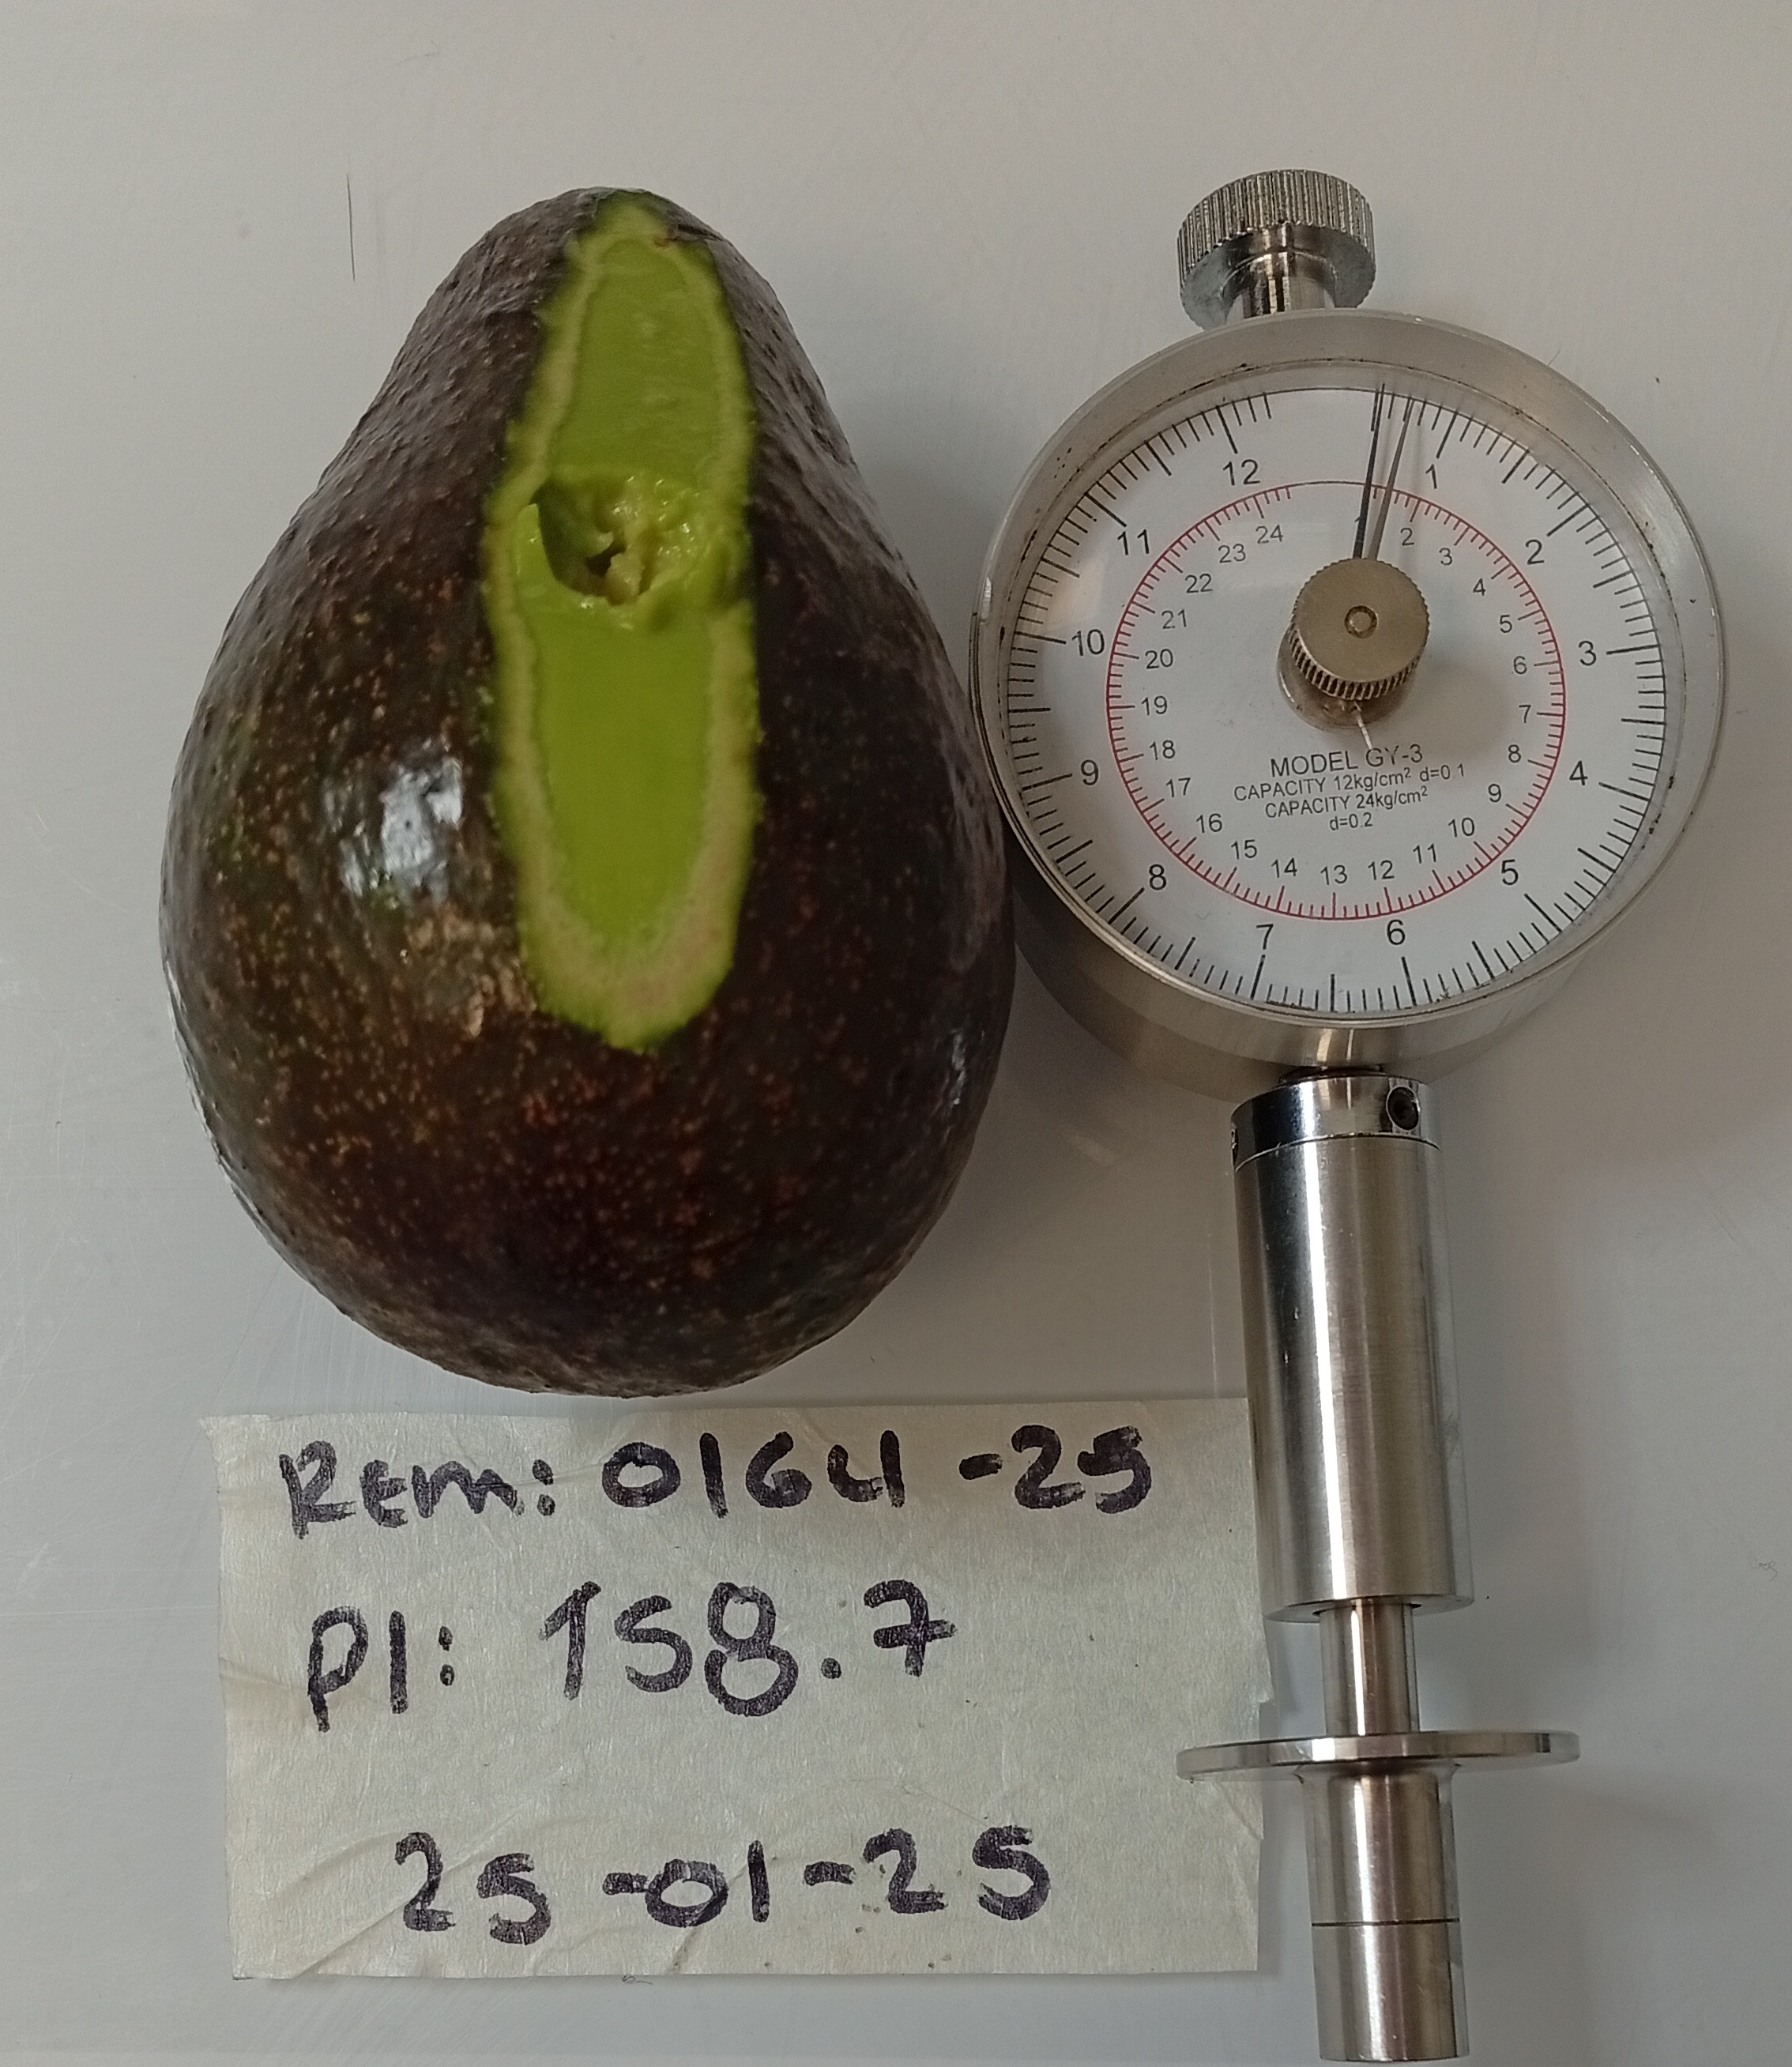 12
1
11
2
10
3
9
4
8
5
7
6
1
2
3
4
5
6
7
8
9
10
11
12
13
14
15
16
17
18
19
20
21
22
23
24
MODEL GY-3
CAPACITY 12kg/cm² d=0.1
CAPACITY 24kg/cm²
d=0.2
Rem: 0164-25
PI: 158.7
25-01-25